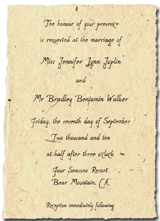 The honour of your presence
is requested at the marriage of
Miss Jennifer Lynn Joplin
and
Mr Bradley Benjamin Walker
Friday, the seventh day of September
Two thousand and ten
at half after three o'clock
Four Seasons Resort
Bear Mountain, CA
Reception immediately following